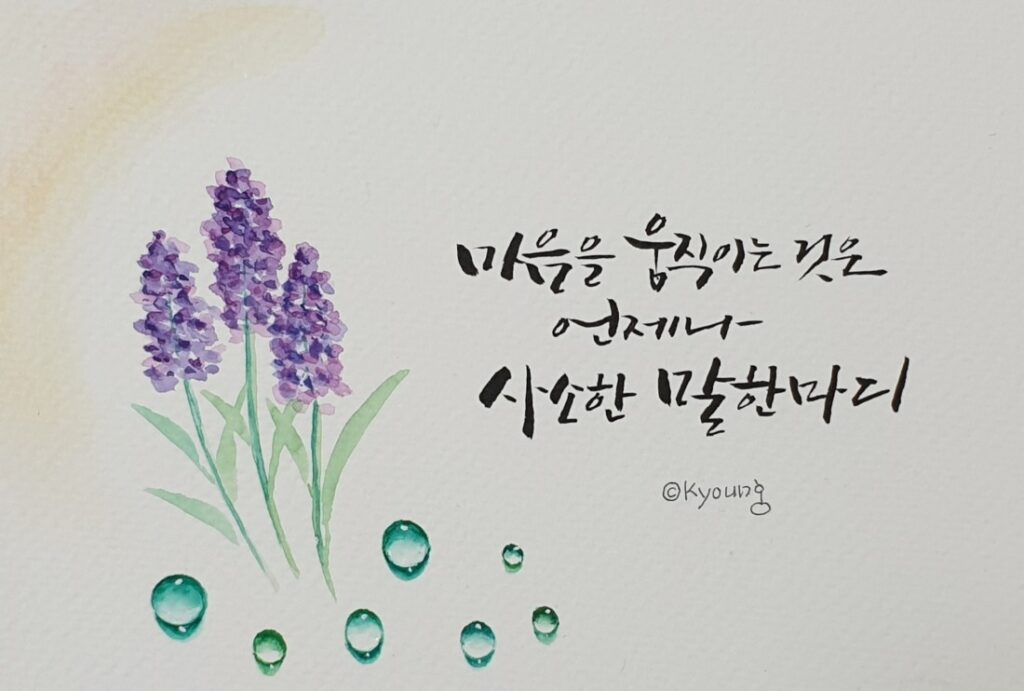 마음을 움직이는 것은
언제나
사소한 말한마디
©Kyoung